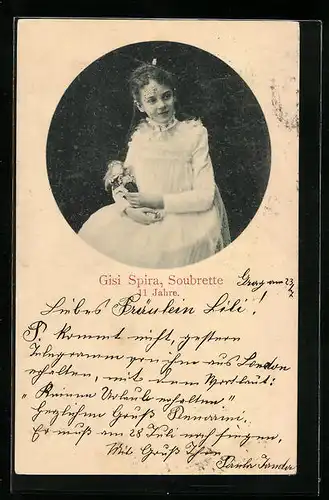 Gisi Spira, Soubrette
11 Jahre.
Graz am 23/7
Liebes Fräulein Lili!
P. kommt nicht, gestern
Telegramm von ihm aus London
erhalten, mit dem Wortlaut:
"Keinen Urlaub erhalten"
Herzlichen Gruß
Er muß am 28 Juli nach
Mit Gruß Ihre
Paula